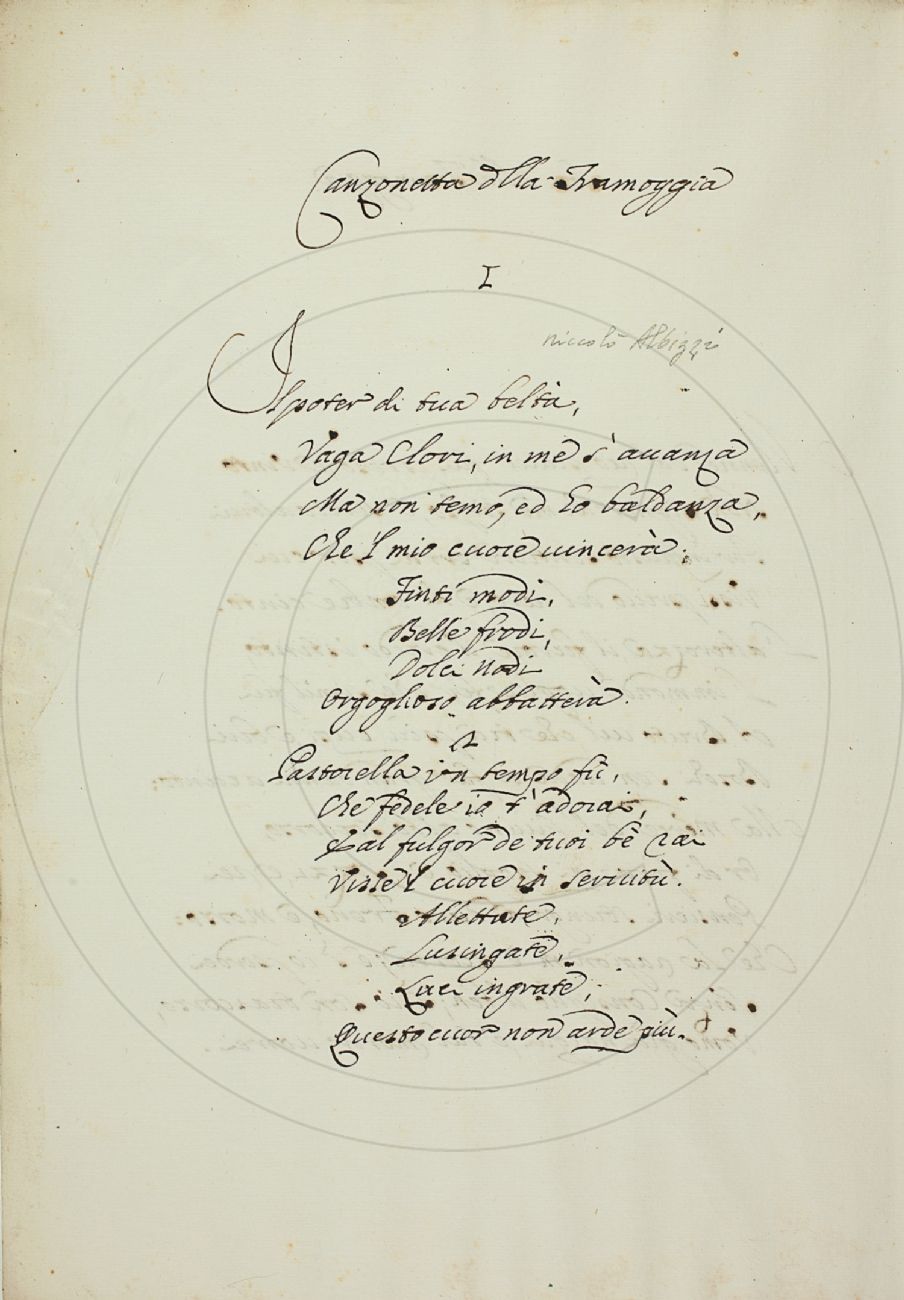 Canzonetta dlla Tramoggia
I
Niccolò Albizzi
Il poter di tua beltà,
Vaga Clori, in me s' auanza
Ma non temo, ed ho baldanza,
Che 'l mio cuore uincerà.
Finti modi,
Belle frodi,
Dolci nodi
Orgoglioso abbatterà.
2
Pastorella un tempo fù,
Che fedele io t' adorai,
E al fulgor de tuoi bè rai
Visse 'l cuore in seruitù.
Allettate,
Lusingate,
Luci ingrate,
Questo cuor non arde più.